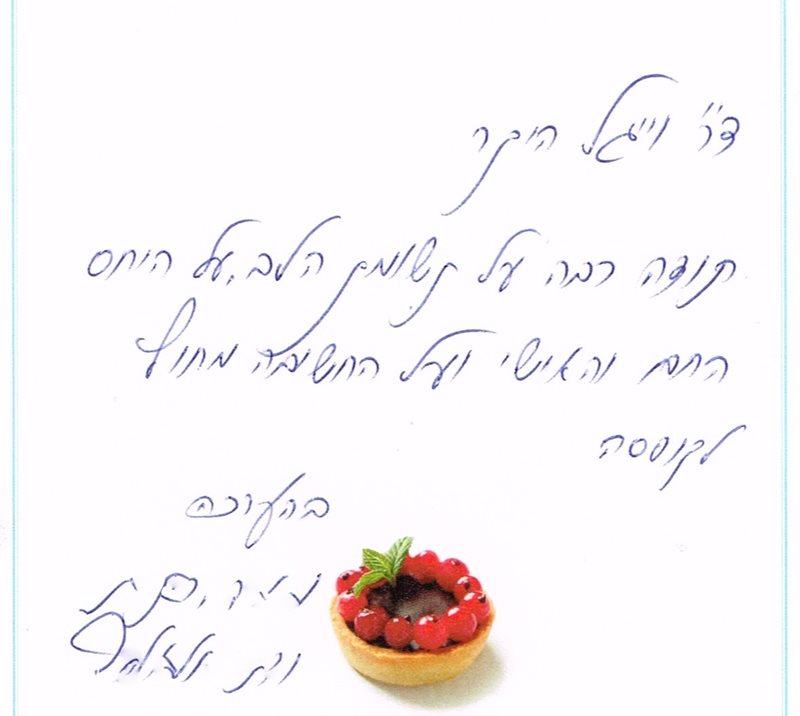 ד"ר וייגל היקר
תודה רבה על תשומת הלב, על היחס
החם והאישי ועל החשיבה מחוץ
לקופסה
בהערכה